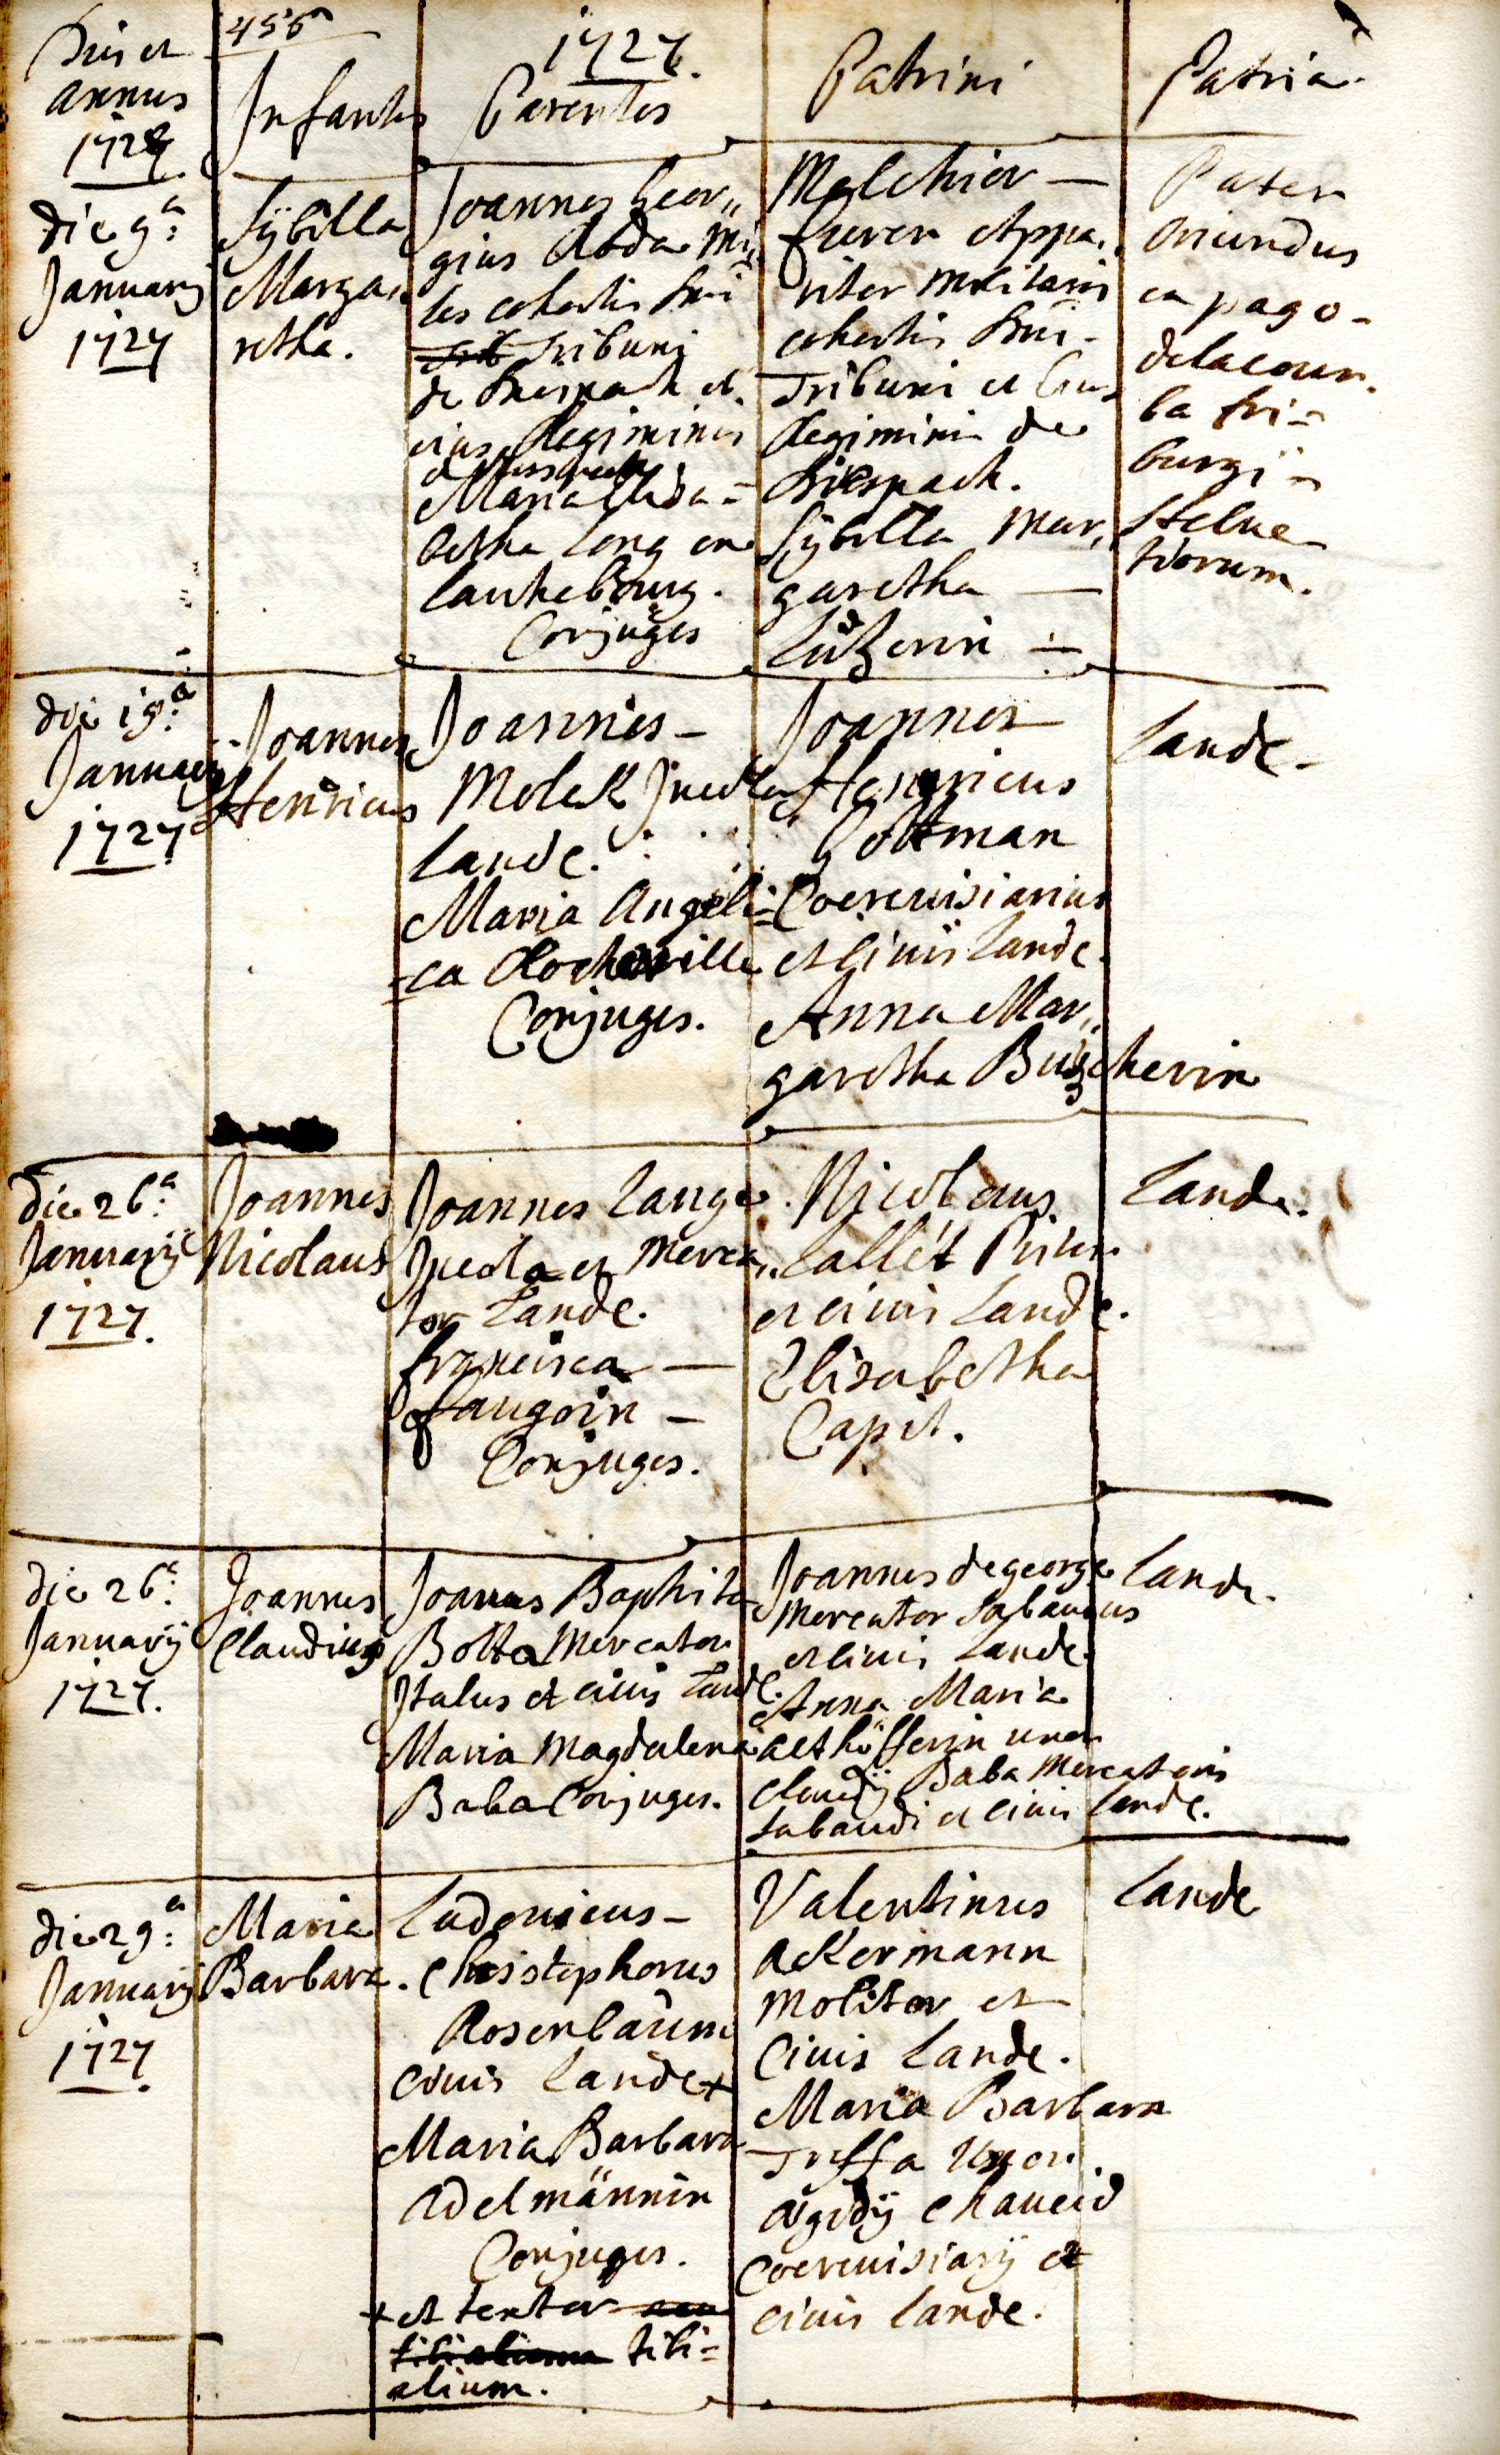 456
1727.
Dies et
annus
1727.
Infantes
Parentes
Patrini
Patria.
die 9a:
Januarij
1727
Sÿbilla
Marga,,
retha.
Joannes Geor,,
gius Roda Mi,,
les cohortis Dni
Tribuni
de Diespach et
eius Regiminis
Maria Elisa=
betha Long ex
Lautebourg.
Conjuges
Melchior —
furer Appa,,
ritor militaris
cohortis Dni -
Tribuni et Eius
Regiminis de
Diespach.
Sÿbilla Mar,,
garetha —
Pater
oriundus
ex pago -
delacour.
ba fri=
burgi =
Helve
tiorum.
die 19a:
Januarij
1727
Joannes
Henricus
Joannes -
Molek Incola
Landæ.
Maria Angeli=
=ca Rocheville
Conjuges.
Joannes
Henricus
Gottman
Coerevisiarius
et civis Landæ.
Anna Mar,,
garetha Buscherin
Landæ.
die 26a:
Januarij
1727.
Joannes
Nicolaus
Joannes Lange
Incola et Merca,,
tor Landæ.
francisca —
faugoin —
Conjuges.
Nicolaus
Lallét Pistor
et civis Landæ.
Elisabetha
Capit.
Landæ.
die 26a:
Januarij
1727.
Joannes
Claudius
Joannes Baptista
Botta Mercator
Italus et civis Landæ.
Maria Magdalena
Baba Conjuges.
Joannes degeorge
Mercator Sabaudus
et civis Landæ.
Anna Maria
althöfferin uxor
Claudij Baba Mercatoris
Sabaudi et civis Landæ.
Landæ.
die 29a:
Januarij
1727
Maria
Barbara.
Ludovicus -
Christophorus
Rosenbaum
civis Landæ +
Maria Barbara
Adelmännin
Conjuges.
+ et textor
tibi=
alium.
Valentinus
Ackermann
Molitor et
Civis Landæ.
Maria Barbara
Treffa Uxor
Ægidÿ Chaucid
Coerevisiarÿ et
civis Landæ.
Landæ